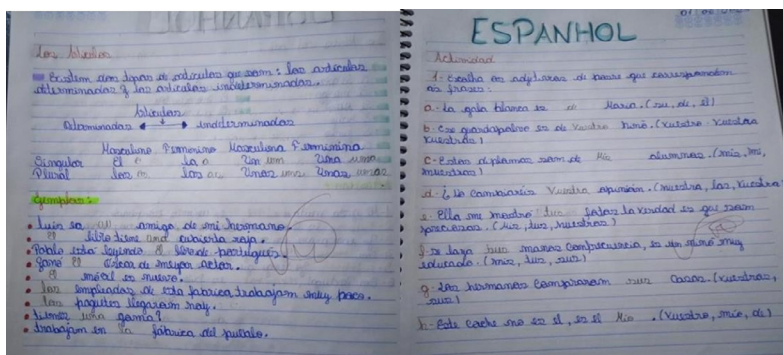 Los Articulos
Existem dos tipos de articulos que som: los articulos
determinados y los articulos indeterminados.
Articulos
Determinados indeterminados
Masculino Femenino Masculino Femininina
Singular El o La a Um um Una uma
Plural los os las as Unos uns Unas umas
Ejemplos:
Luis es un amigo de mi hermano.
El libro tiene una cubierta roja.
Pablo esta leyendo el libro de portugués.
Ganó el Oscar de mejor actor.
El móvil es nuevo.
los empleados de esta fabrica, trabajam muy poco.
los paquetes llegaram hoy.
tienes una goma?
trabajam en la fábrica del pueblo.
ESPANHOL
Actividad
1- Escolha os adjetivos de posse que correspondem
as frases:
a- La gata blanca es de Maria. (su, de, él)
b- Ese guardapolvo es de Vuestro niño. (Vuestro, Vuestra
Vuestros)
c- Estos diplomas som de Mis alumnos. (mis, mi,
nuestros)
d- ¿No cambiaréis Vuestra opinión. (nuestra, las, Vuestra)
e- Ella me mostró tus fotos la verdad es que som
preciosas. (Mis, tus, nuestras)
f- se lava sus manos con frecuencia, es un niño muy
educado. (mis, tus, sus)
g- Los hermanos compraram sus casas. (Vuestras,
sus)
h- Este coche no es él, es el Mio. (Vuestro, mio, de)